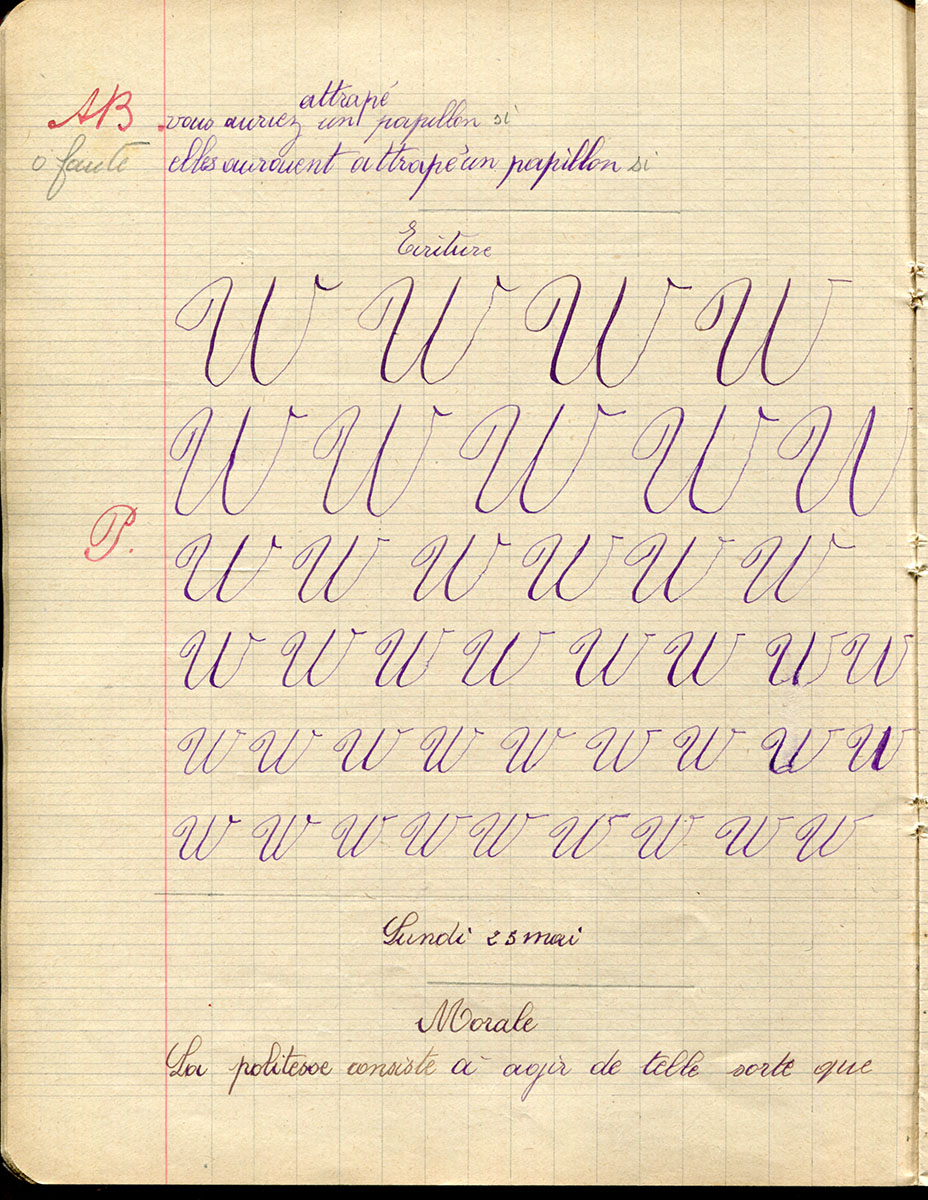 attrapé
AB vous auriez un papillon si
0 faute elles auraient attrapé un papillon si
Ecriture
W W W W
W W W W W
P.
W W W W W W
W W W W W W W W
W W W W W W W W W
W W W W W W W W W
Lundi 25 mai
Morale
La politesse consiste à agir de telle sorte que